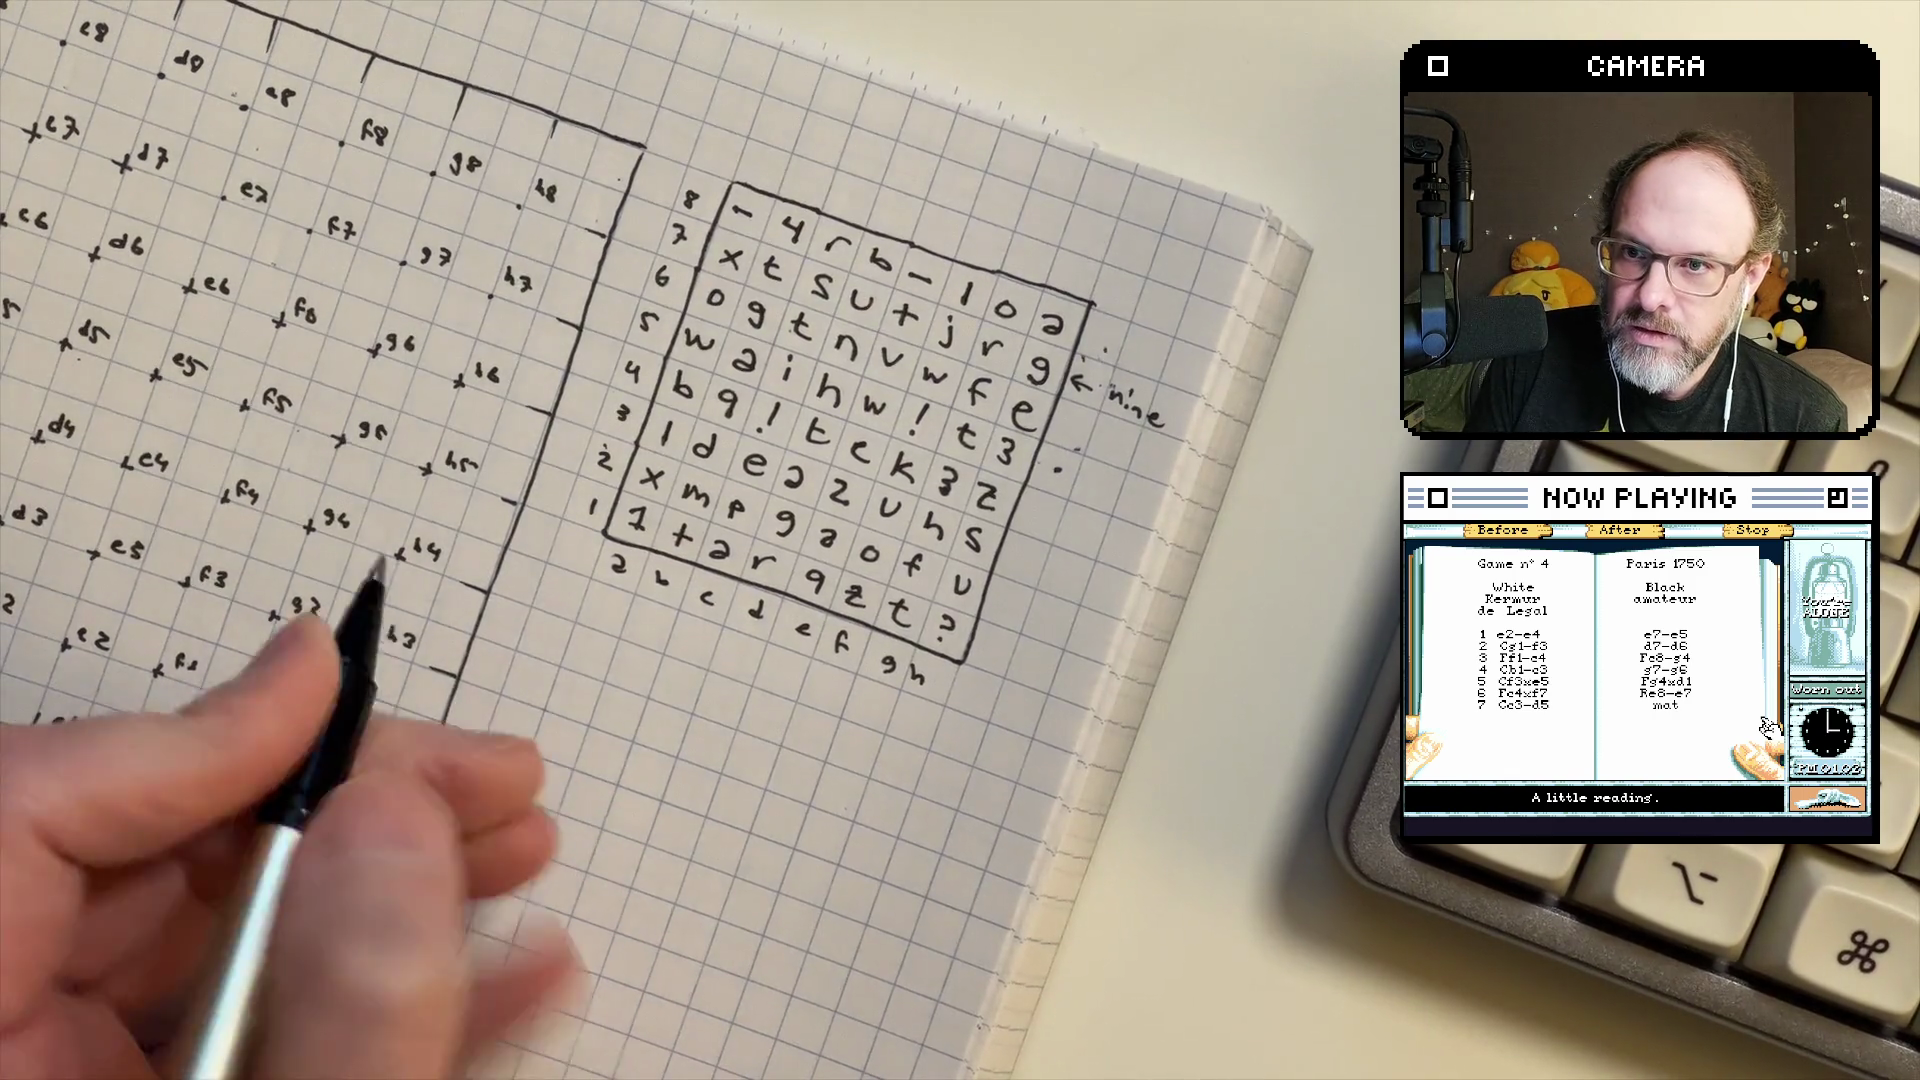 c8
d8
e8
f8
g8
h8
c7
d7
e7
f7
g7
h7
c6
d6
e6
f6
g6
h6
d5
e5
f5
g5
h5
d4
e4
f4
g4
h4
d3
e3
f3
g3
h3
e2
8 - 4 r b - 1 o a
7 x t s u + j r g
6 o g t n v w f e
5 w a i h w ! t 3
4 b q ! t c k 3 z
3 1 d e a z u h s
2 x m p g a o f u
1 1 + a r q z t ?
a b c d e f g h
← nine
CAMERA
NOW PLAYING
Before After Stop
Game n° 4
White
Kermur
de Legal
1 e2-e4
2 Cg1-f3
3 Ff1-c4
4 Cb1-c3
5 Cf3xe5
6 Fc4xf7
7 Cc3-d5
Paris 1750
Black
amateur
e7-e5
d7-d6
Fc8-g4
g7-g6
Fg4xd1
Re8-e7
mat
You're
ALONE
Worn out
PM 01.02
A little reading.
⌥
⌘